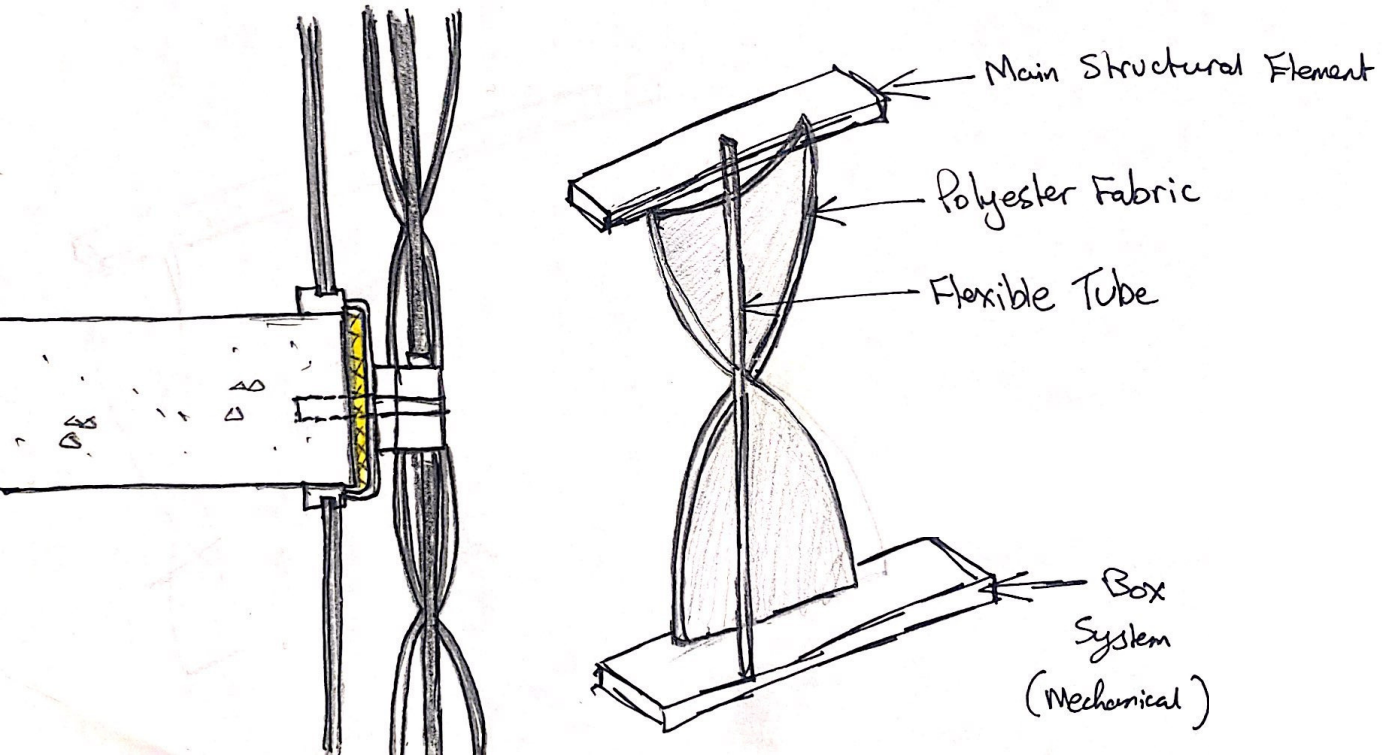 Main Structural Element
Polyester Fabric
Flexible Tube
Box
System
(Mechanical)